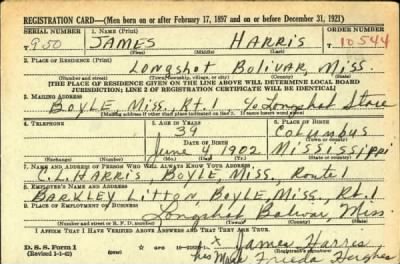 REGISTRATION CARD—(Men born on or after February 17, 1897 and on or before December 31, 1921)
SERIAL NUMBER 1. NAME (Print) ORDER NUMBER
950 JAMES HARRIS 10544
(First) (Middle) (Last)
2. PLACE OF RESIDENCE (Print)
Longshot Bolivar, Miss.
(Number and street) (Town, township, village, or city) (County) (State)
[THE PLACE OF RESIDENCE GIVEN ON THE LINE ABOVE WILL DETERMINE LOCAL BOARD
JURISDICTION; LINE 2 OF REGISTRATION CERTIFICATE WILL BE IDENTICAL]
3. MAILING ADDRESS
Boyle, Miss., Rt. 1 % Longshot Store
[Mailing address if other than place indicated on line 2. If same insert word same]
4. TELEPHONE 5. AGE IN YEARS 6. PLACE OF BIRTH
39 Columbus
DATE OF BIRTH (Town or county)
June 4 1902 Mississippi
(Exchange) (Number) (Mo.) (Day) (Yr.) (State or country)
7. NAME AND ADDRESS OF PERSON WHO WILL ALWAYS KNOW YOUR ADDRESS
C. L. HARRIS Boyle, Miss., Route 1
8. EMPLOYER'S NAME AND ADDRESS
BARKLEY Litton, Boyle, Miss., Rt. 1
9. PLACE OF EMPLOYMENT OR BUSINESS
Longshot, Bolivar, Miss.
(Number and street or R. F. D. number) (Town) (County) (State)
I AFFIRM THAT I HAVE VERIFIED ABOVE ANSWERS AND THAT THEY ARE TRUE.
D. S. S. Form 1
(Revised 1-1-42)
x James Harris
his Mark Frieda Hughes